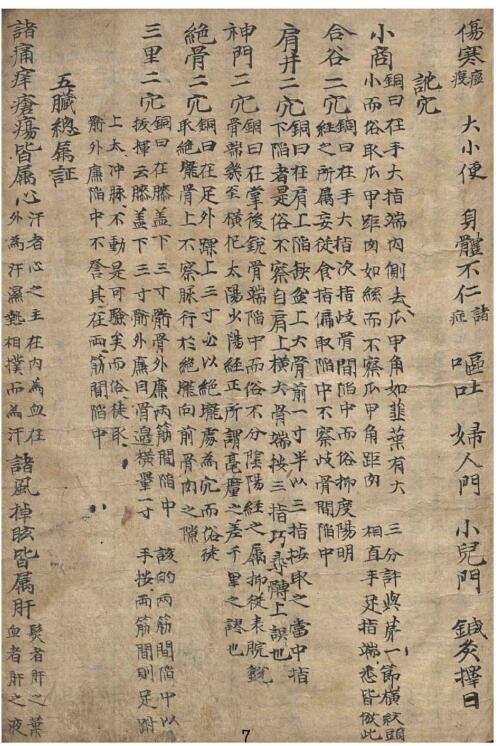 傷寒 瘟疫 大小便 身體不仁 諸症 嘔吐 婦人門 小兒門 鍼灸擇日
訛穴
小商 銅曰在手大指端內側去爪甲角如韭葉有大
小而俗取爪甲距肉如絲而不察爪甲角距肉
三分計與第一節橫紋頭
相直手足指端悉皆倣此
合谷二穴 銅曰在手大指次指歧骨間陷中而俗抑度陽明
經之所屬妄徒食指偏取陷中不察歧骨間陷中
肩井二穴 銅曰在肩上陷缺盆上大骨前一寸半以三指按取之當中指
下陷者是俗不察自肩上橫大骨端按三指巧尋髆上誤也
神門二穴 銅曰在掌後銳骨端陷中而俗不分陰陽經之屬抑從表腕銳
骨端幾至橫犯太陽少陽經正所謂毫釐之差千里之謬也
絕骨二穴 銅曰在足外踝上三寸必以絕壠處為穴而俗徒
取絕壠骨上不察脉行於絕壠向前骨肉之隙
三里二穴 銅曰在膝盖下三寸䯒骨外廉兩筋間陷中
抜揮云膝盖下三寸䯒外廉自骨邊橫量一寸
該的兩筋間陷中以
手按兩筋間則足跗
上太冲脉不動是可驗矣而俗徒取
䯒外廉陷中不詧其在兩筋間陷中
五臟總属証
諸痛痒瘡瘍皆属心 汗者心之主在內為血在
外為汗濕熱相撲而為汗
諸風掉眩皆属肝 髮者肝之葉
血者肝之液
7